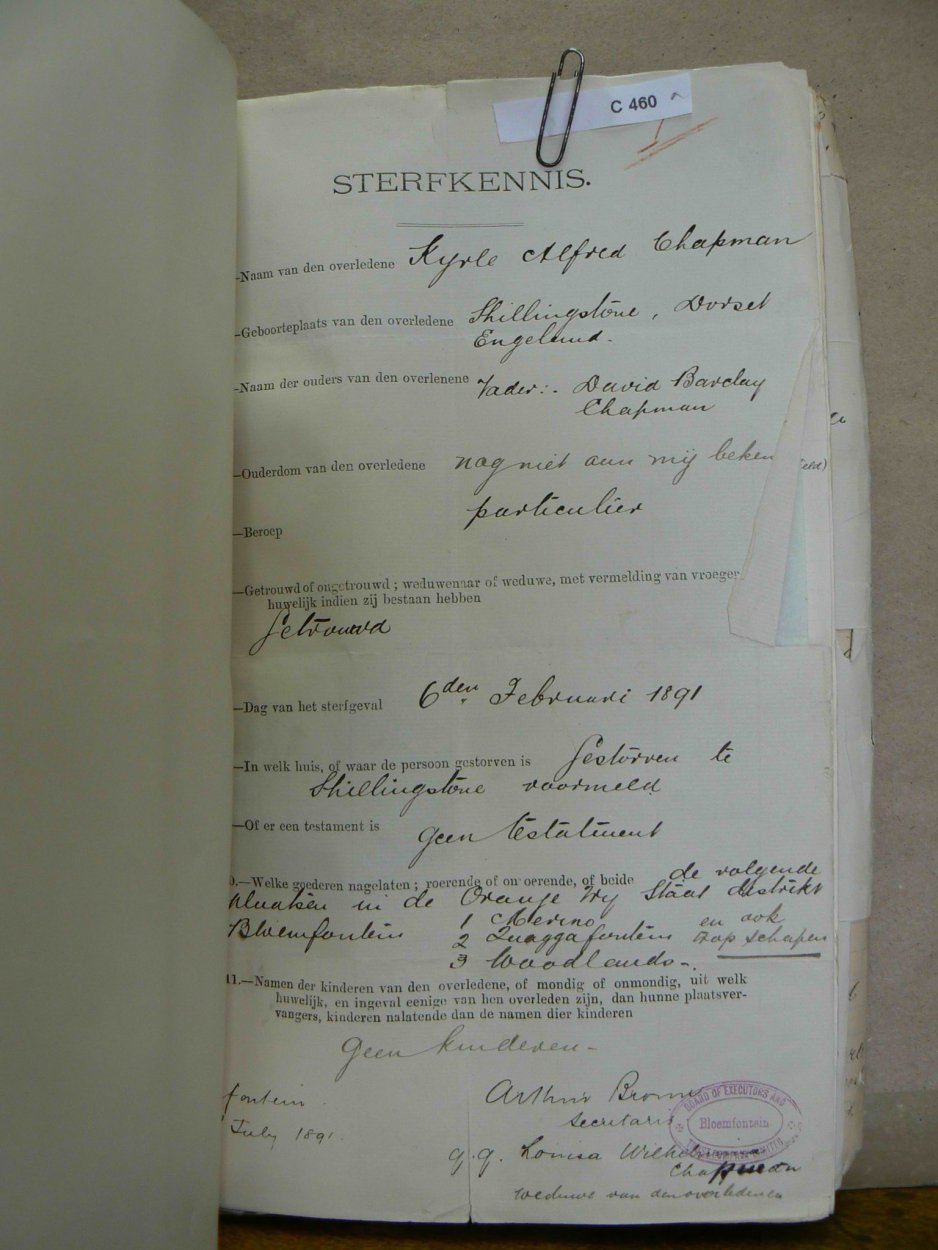 C 460
STERFKENNIS.
—Naam van den overledene Kyrle Alfred Chapman
—Geboorteplaats van den overledene Shillingstone, Dorset
Engeland.
—Naam der ouders van den overlenene Vader:. David Barclay
Chapman
—Ouderdom van den overledene nog niet aan mij beken
particulier
—Beroep
—Getrouwd of ongetrouwd; weduwenaar of weduwe, met vermelding van vroeger
huwelijk indien zij bestaan hebben
Getrouwd
—Dag van het sterfgeval 6den Februari 1891
—In welk huis, of waar de persoon gestorven is Gestorven te
Shillingstone voormeld
—Of er een testament is geen testatment
—Welke goederen nagelaten; roerende of on oerende, of beide de volgende
plaatsen in de Oranje Vrij Staat distrikt
Bloemfontein 1 Merino en ook
2 Quaggafontein schapen
3 Woodlands-.
11.—Namen der kinderen van den overledene, of mondig of onmondig, uit welk
huwelijk, en ingeval eenige van hen overleden zijn, dan hunne plaatsver-
vangers, kinderen nalatende dan de namen dier kinderen
Geen kinderen-
fontein. Arthur Brown
Secretaris
BOARD OF EXECUTORS AND
Bloemfontein
July 1891.
q.q. Louisa Wilhel
Chapman
weduwe van den overledenen